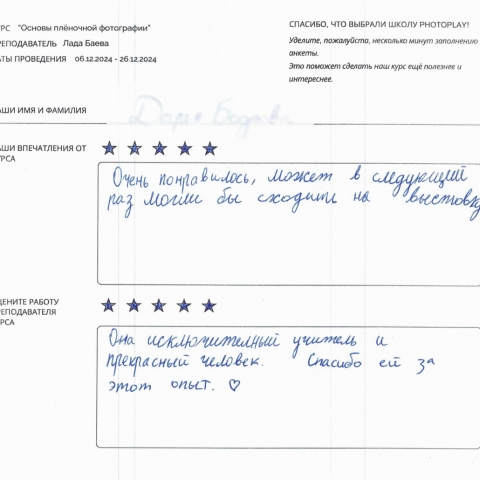 УРС "Основы плёночной фотографии"
РЕПОДАВАТЕЛЬ Лада Баева
АТЫ ПРОВЕДЕНИЯ 06.12.2024 - 26.12.2024
СПАСИБО, ЧТО ВЫБРАЛИ ШКОЛУ PHOTOPLAY!
Уделите, пожалуйста, несколько минут заполнению
анкеты.
Это поможет сделать наш курс ещё полезнее и
интереснее.
АШИ ИМЯ И ФАМИЛИЯ
АШИ ВПЕЧАТЛЕНИЯ ОТ
УРСА
Очень понравилось, может в следующий
раз могли бы сходить на выставку
ЦЕНИТЕ РАБОТУ
РЕПОДАВАТЕЛЯ
УРСА
Она исключителный учитель и
прекрасный человек. Спасибо ей за
этот опыт. ♡